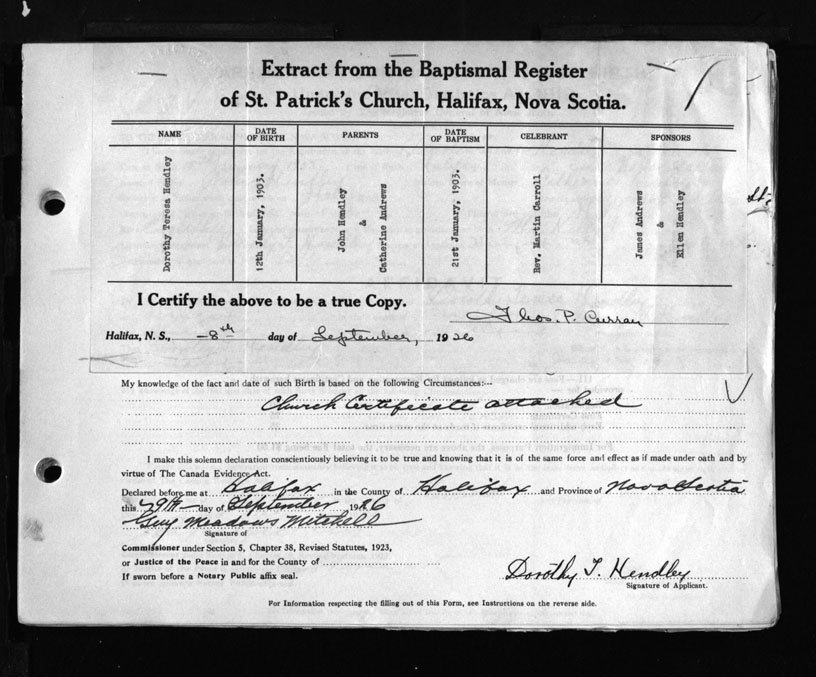 Extract from the Baptismal Register
of St. Patrick's Church, Halifax, Nova Scotia.
NAME DATE OF BIRTH PARENTS DATE OF BAPTISM CELEBRANT SPONSORS
Dorothy Teresa Hendley
12th January, 1903.
John Hendley
&
Catherine Andrews
21st January, 1903.
Rev. Martin Carroll
James Andrews
&
Ellen Hendley
I Certify the above to be a true Copy.
Thos. P. Curran
Halifax, N. S., 8th day of September, 1926
My knowledge of the fact and date of such Birth is based on the following Circumstances:--
Church Certificate attached
I make this solemn declaration conscientiously believing it to be true and knowing that it is of the same force and effect as if made under oath and by
virtue of The Canada Evidence Act.
Declared before me at Halifax in the County of Halifax and Province of Nova Scotia
this 29th day of September 1926
Guy Meadows Mitchell
Signature of
Commissioner under Section 5, Chapter 38, Revised Statutes, 1923,
or Justice of the Peace in and for the County of
If sworn before a Notary Public affix seal.
Dorothy T. Hendley
Signature of Applicant.
For Information respecting the filling out of this Form, see Instructions on the reverse side.